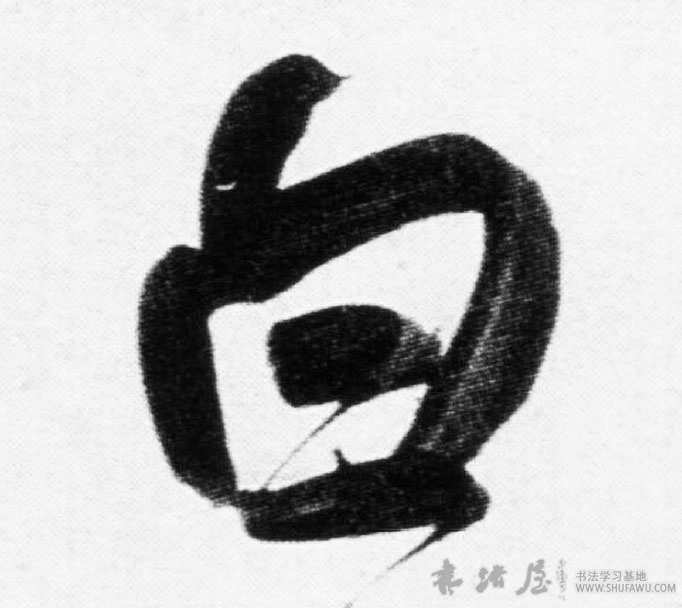 白
书法屋
书法学习基地
WWW.SHUFAWU.COM